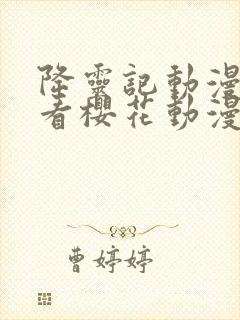 降靈記動漫
看櫻花動漫
曹婷婷